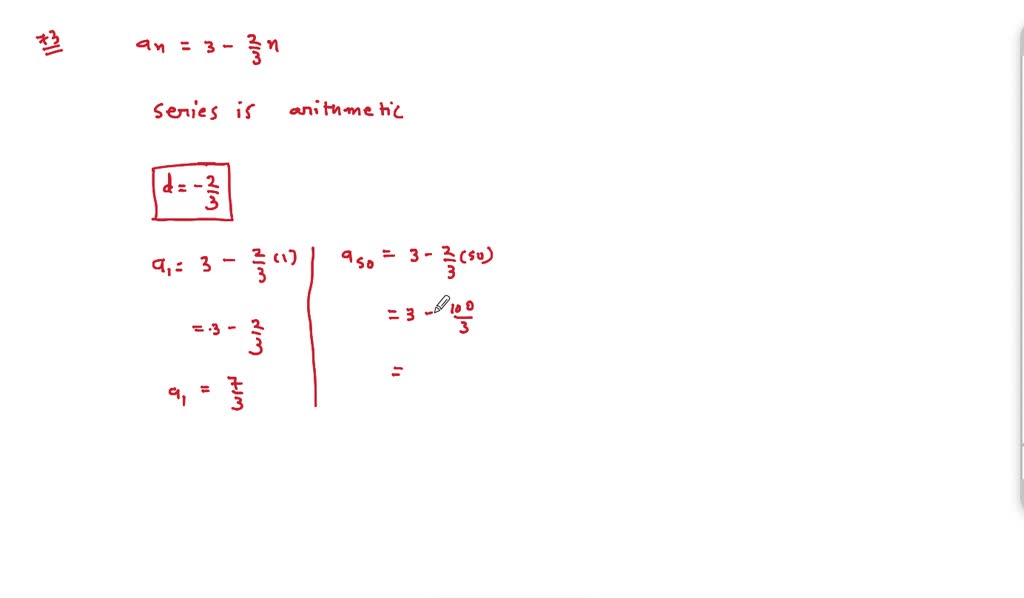 73
aₙ = 3 - 2/3 n
series is arithmetic
d = - 2/3
a₁ = 3 - 2/3 (1)
= 3 - 2/3
a₁ = 7/3
a₅₀ = 3 - 2/3 (50)
= 3 - 100/3
=